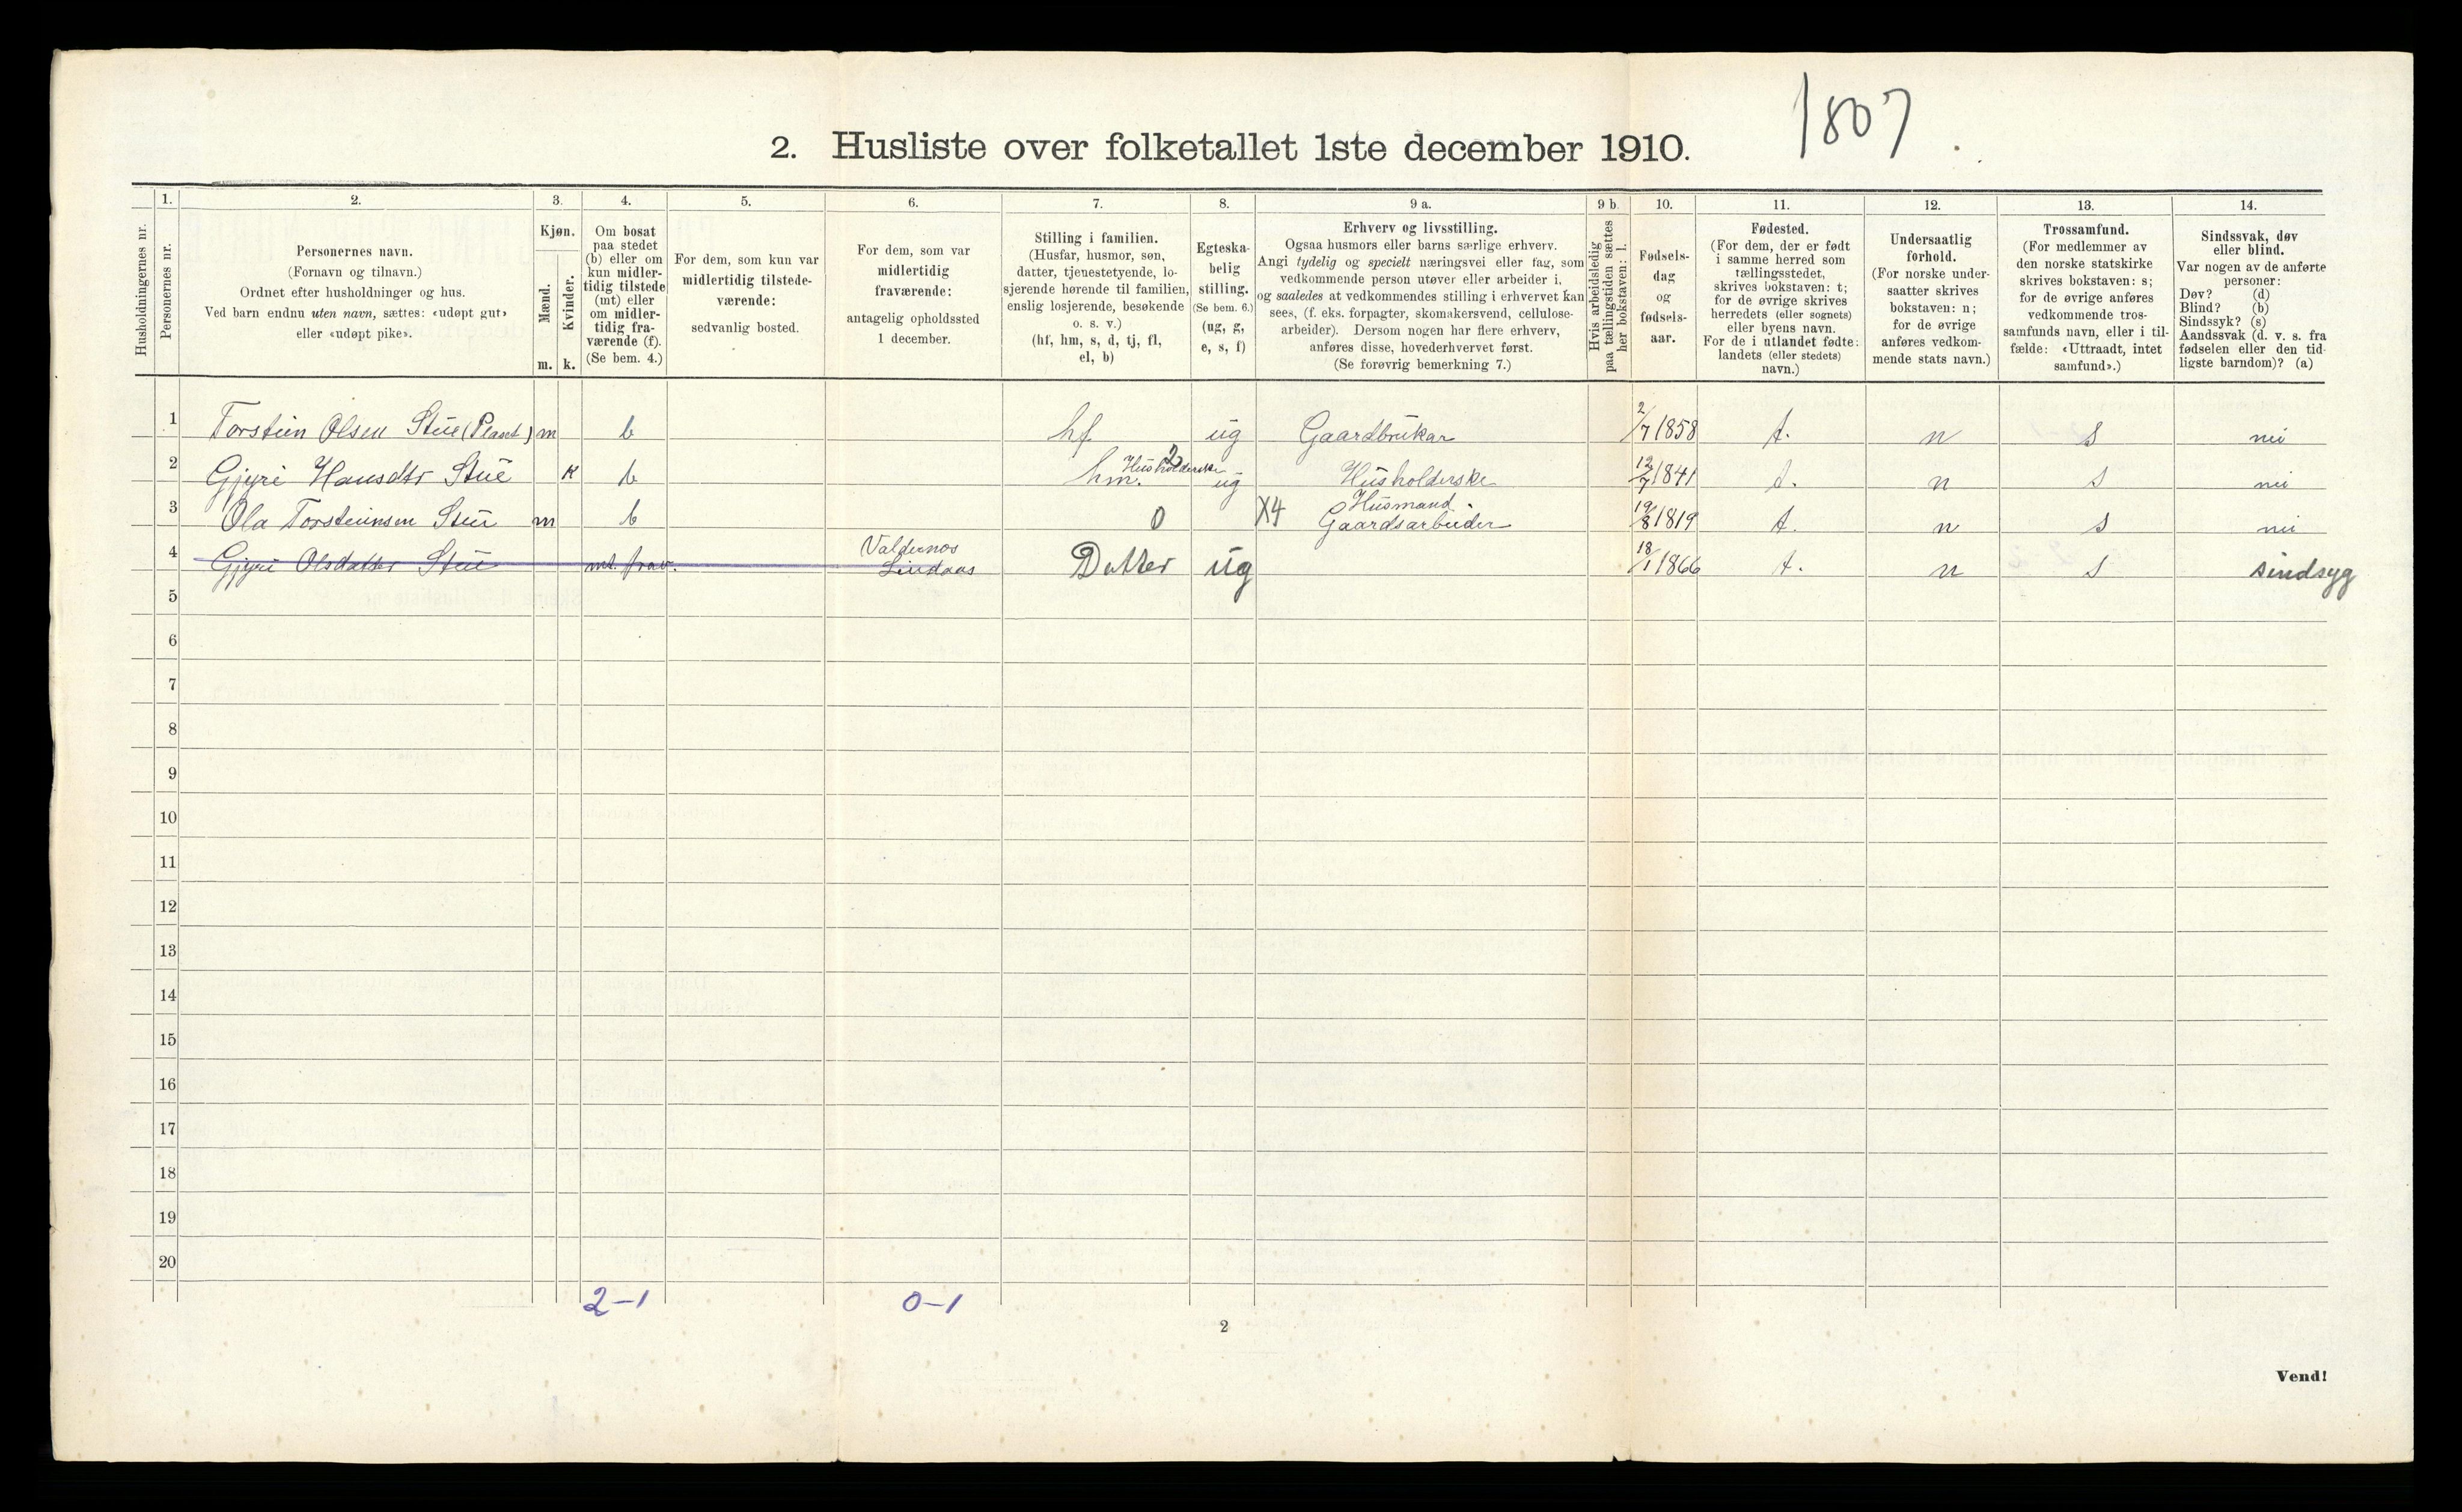 1807
2. Husliste over folketallet 1ste december 1910.
Husholdningernes nr.
1.
Personernes nr.
2.
Personernes navn.
(Fornavn og tilnavn.)
Ordnet efter husholdninger og hus.
Ved barn endnu uten navn, sættes: «udøpt gut»
eller «udøpt pike».
3.
Kjøn.
Mænd.
Kvinder.
m. k.
4.
Om bosat
paa stedet
(b) eller om
kun midler-
tidig tilstede
(mt) eller
om midler-
tidig fra-
værende (f).
(Se bem. 4.)
5.
For dem, som kun var
midlertidig tilstede-
værende:
sedvanlig bosted.
6.
For dem, som var
midlertidig
fraværende:
antagelig opholdssted
1 december.
7.
Stilling i familien.
(Husfar, husmor, søn,
datter, tjenestetyende, lo-
sjerende hørende til familien,
enslig losjerende, besøkende
o. s. v.)
(hf, hm, s, d, tj, fl,
el, b)
8.
Egteska-
belig
stilling.
(Se bem. 6.)
(ug, g,
e, s, f)
9 a.
Erhverv og livsstilling.
Ogsaa husmors eller barns særlige erhverv.
Angi tydelig og specielt næringsvei eller fag, som
vedkommende person utøver eller arbeider i,
og saaledes at vedkommendes stilling i erhvervet kan
sees, (f. eks. forpagter, skomakersvend, cellulose-
arbeider). Dersom nogen har flere erhverv,
anføres disse, hovederhvervet først.
(Se forøvrig bemerkning 7.)
9 b.
Hvis arbeidsledig
paa tællingstiden sættes
her bokstaven: l.
10.
Fødsels-
dag
og
fødsels-
aar.
11.
Fødested.
(For dem, der er født
i samme herred som
tællingsstedet,
skrives bokstaven: t;
for de øvrige skrives
herredets (eller sognets)
eller byens navn.
For de i utlandet fødte:
landets (eller stedets)
navn.)
12.
Undersaatlig
forhold.
(For norske under-
saatter skrives
bokstaven: n;
for de øvrige
anføres vedkom-
mende stats navn.)
13.
Trossamfund.
(For medlemmer av
den norske statskirke
skrives bokstaven: s;
for de øvrige anføres
vedkommende tros-
samfunds navn, eller i til-
fælde: «Uttraadt, intet
samfund».)
14.
Sindssvak, døv
eller blind.
Var nogen av de anførte
personer:
Døv? (d)
Blind? (b)
Sindssyk? (s)
Aandssvak (d. v. s. fra
fødselen eller den tid-
ligste barndom)? (a)
1 Torstein Olsen Stue (Plasset) m b hf ug Gaardbrukar 2/7 1858 t. n s nei
2 Gjyri Hansdtr Stue k b hm. Husholderske 2 ug Husholderske 12/7 1841 t. n s nei
3 Ola Torsteinsen Stue m b 0 X4 Husmand. Gaardsarbeider 19/8 1819 t. n s nei
4 Gjyri Olsdatter Stue mt. frav. Valdernos Lindaas Datter ug 18/1 1866 t. n s sindsyg
5
6
7
8
9
10
11
12
13
14
15
16
17
18
19
20
2-1 0-1
2
Vend!